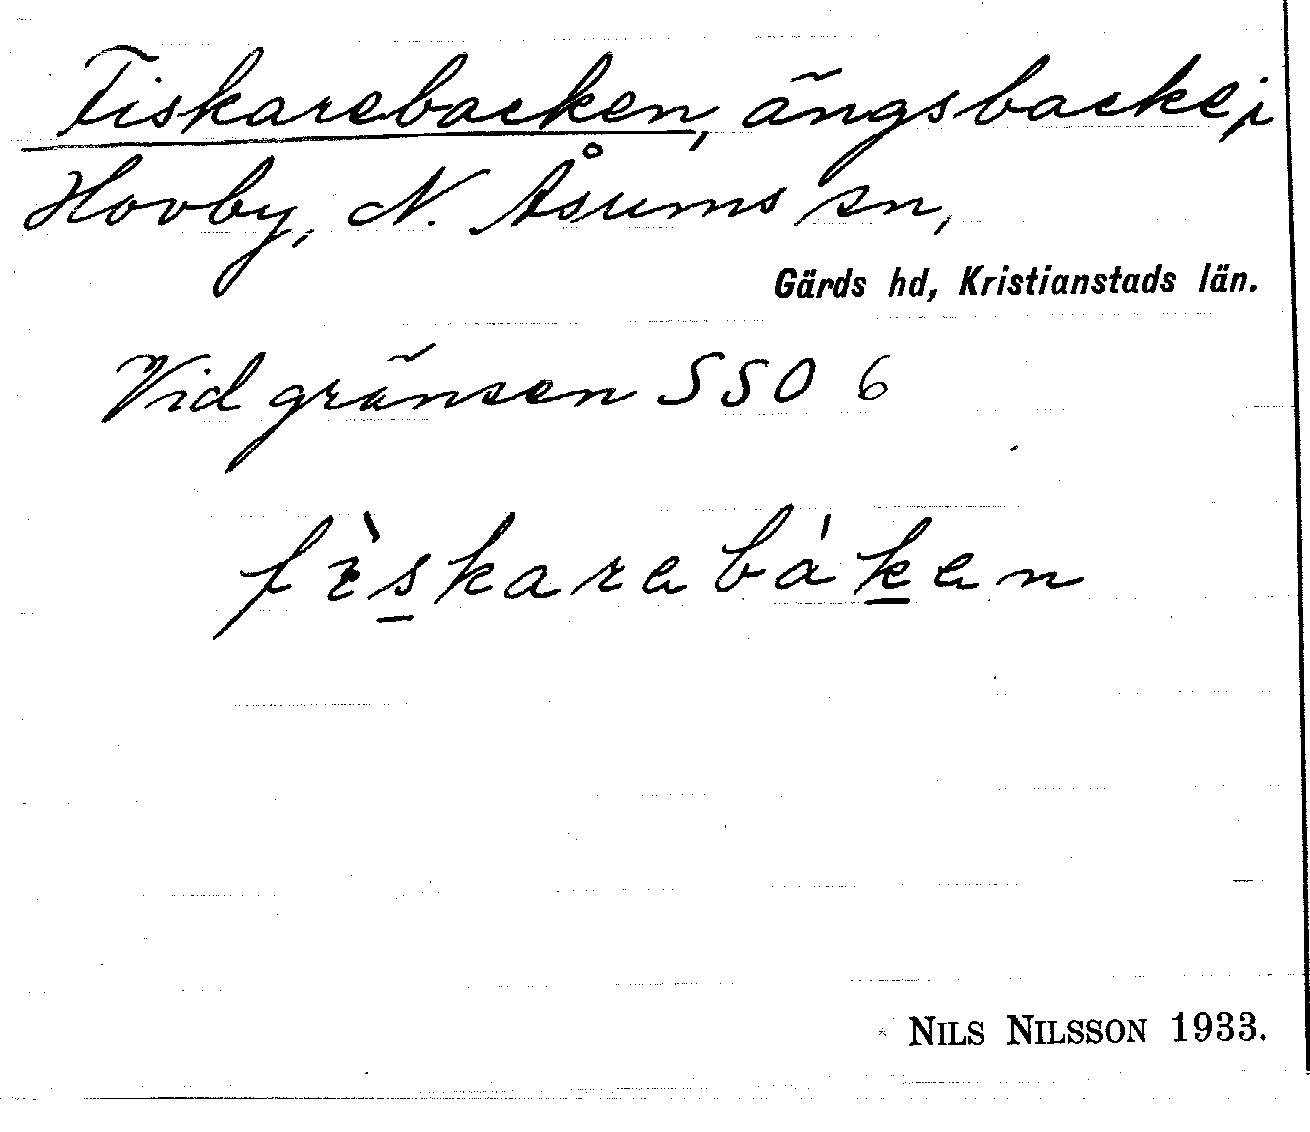 Fiskarebacken, ängsbacke i
Hovby, N. Åsums sn,
Gärds hd, Kristianstads län.
Vid gränsen SSO 6
fìskarebáken
NILS NILSSON 1933.